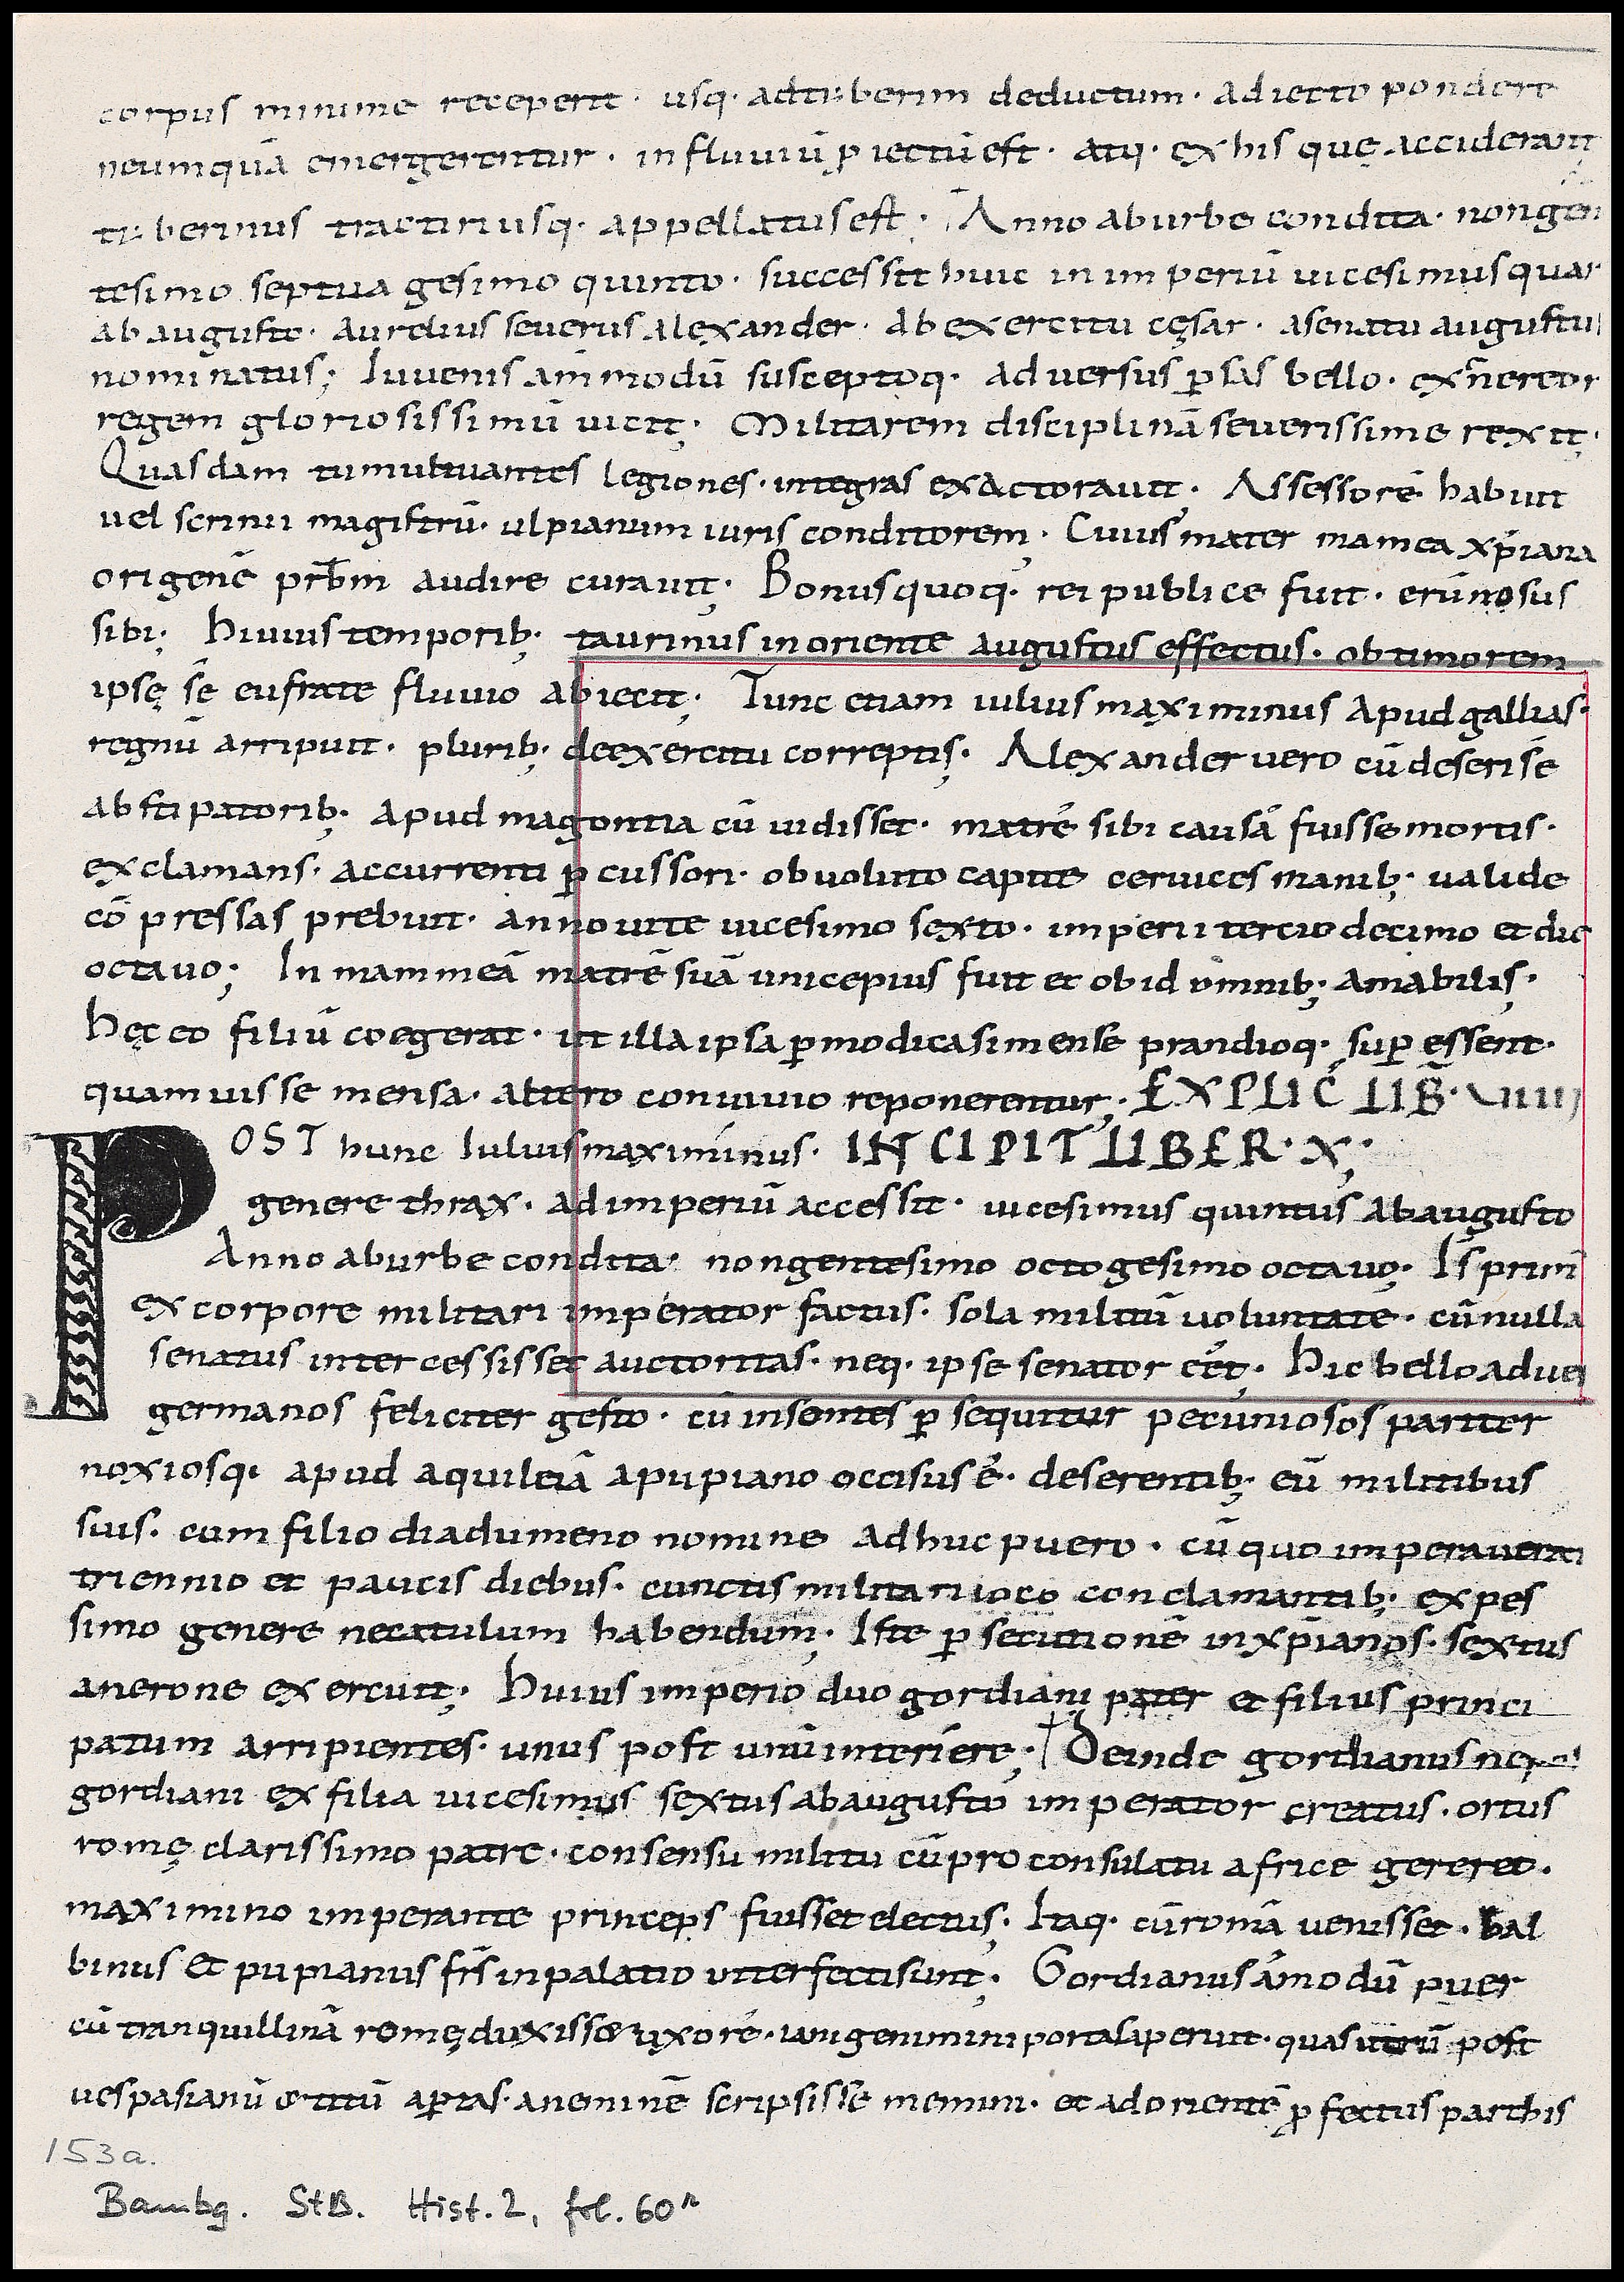 corpus minime receperit · usq· adtiberim deductum · adiecto pondere
neumquā emergeretur · influuiū ꝓiectū est · atq· ex his quę acciderant
tiberinus tractitiusq· appellatus est · Anno aburbe condita · nongen
tesimo septuagesimo quinto · successit huic in imperiū uicesimus quar
ab augusto · aurelius seuerus alexander · ab exercitu cęsar · asenatu augustu
nominatus; Iuuenis ammodū susceptoq· aduersus ꝑsas bello · 
regem gloriosissimū uicit; Militarem disciplinā seuerissime rexit;
Quasdam tumultuantes legiones · integras exactorauit; Assessorē habuit
uel scrinii magistrū · ulpianum iuris conditorem; Cuius mater mamea xp̄iana
origenē prb̄m audire curauit; Bonus quoq· rei publice fuit · erūnosus
sibi; Huius temporib; taurinus in oriente augustus effectus · ob timorem
ipsę sē eufrate fluuio abiecit; Tunc etiam iulius maximinus apud gallias ·
regnū arripuit · plurib; deexercitu correptis; Alexander uero cū deseri sē
ab stipatorib; apud magontia cū uidisset · matrē sibi causā fuisse mortis ·
exclamans · accurrenti ꝑcussori · obuoluto capite ceruices manib; ualide
cō pressas prebuit · anno uite uicesimo sexto · imperii tercio decimo et die
octauo; In mammeā matrē suā unicepius fuit et ob id omnib; amabilis;
Hęc eo filiū coegerat · ut illa ipsa ꝑmodica simense prandioq· suꝑ essent ·
quamuis se mensa · altero conuiuio reponerentur; EXPLIC̄ LIB̄ · VIIII
POST hunc Iulius maximinus · INCIPIT LIBER · X ;
genere thrax · ad imperiū accessit · uicesimus quintus abaugusto
Anno aburbe condita · nongentesimo octogesimo octauo; Is prim̄
ex corpore militari imperator factus · sola militū uoluntate · cū nulla
senatus intercessisset auctoritas · neq· ipse senator eēt; Hic bello aduer
germanos feliciter gesto · cū insontes ꝑsequitur pecuniosos pariter
noxiosq· apud aquileiā apupiano occisus ē · deserentib; eū militibus
suis · cum filio diadumeno nomine adhuc puero · cū quo imperauerat
triennio et paucis diebus · cunctis militari ioco conclamantib; ex pes
simo genere necatulum habendum; Iste ꝑsecutionē in xp̄ianos · sextus
anerone exercuit; Huius imperio duo gordiani pater et filius princi
patum arripientes · unus post unū interiere; Deinde gordianus nepos
gordiani ex filia uicesimus sextus abaugusto imperator creatus · ortus
romę clarissimo patre · consensu militū cū proconsulatu africe gereret ·
maximino imperante princeps fuisset electus; Itaq· cū romā uenisset · bal
binus et pupianus frs̄ in palatio interfecti sunt; Gordianus āmodū puer
cū tranquillinā romę duxisset uxorē · iani gemini portas aperuit · quas utrū post
uespasianū & titū aꝑtas · aneminē scripsisse memini · et ad orientē ꝓfectus parthis
153a.
Bambg. StB. Hist. 2, fol. 60r